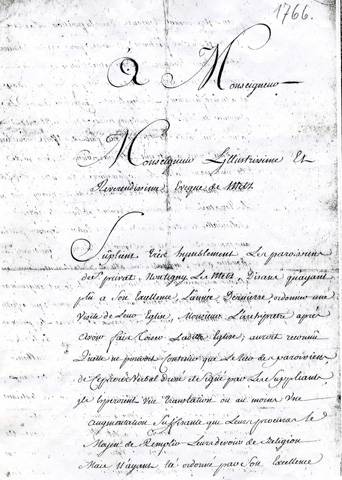 1766.
à Monseigneur
Monseigneur Lillustrissime Et
Reverendissime Eveque de Metz.
Suplient très humblement Les paroissiens
de St privat, Montigny, Les Metz, Disans quayant
plû a Son Excellence, L'année Dernierre, ordonner une
Visite de Leur Eglise, Monsieur L'archiprêtre après
avoir fait toiser Laditte Eglise, auroit reconnû
Quelle ne pouvoit Contenir que Le tiers de paroissiens
de Ce procès Verbal dressé et signé par Les Suppliants,
Ils Esperoient Une translation ou au moins Une
augmentation Suffisante qui Leurs procura le
Moyen de Remplir Leurs devoirs de Religion
Mais N'ayant été ordonné par Son Excellence